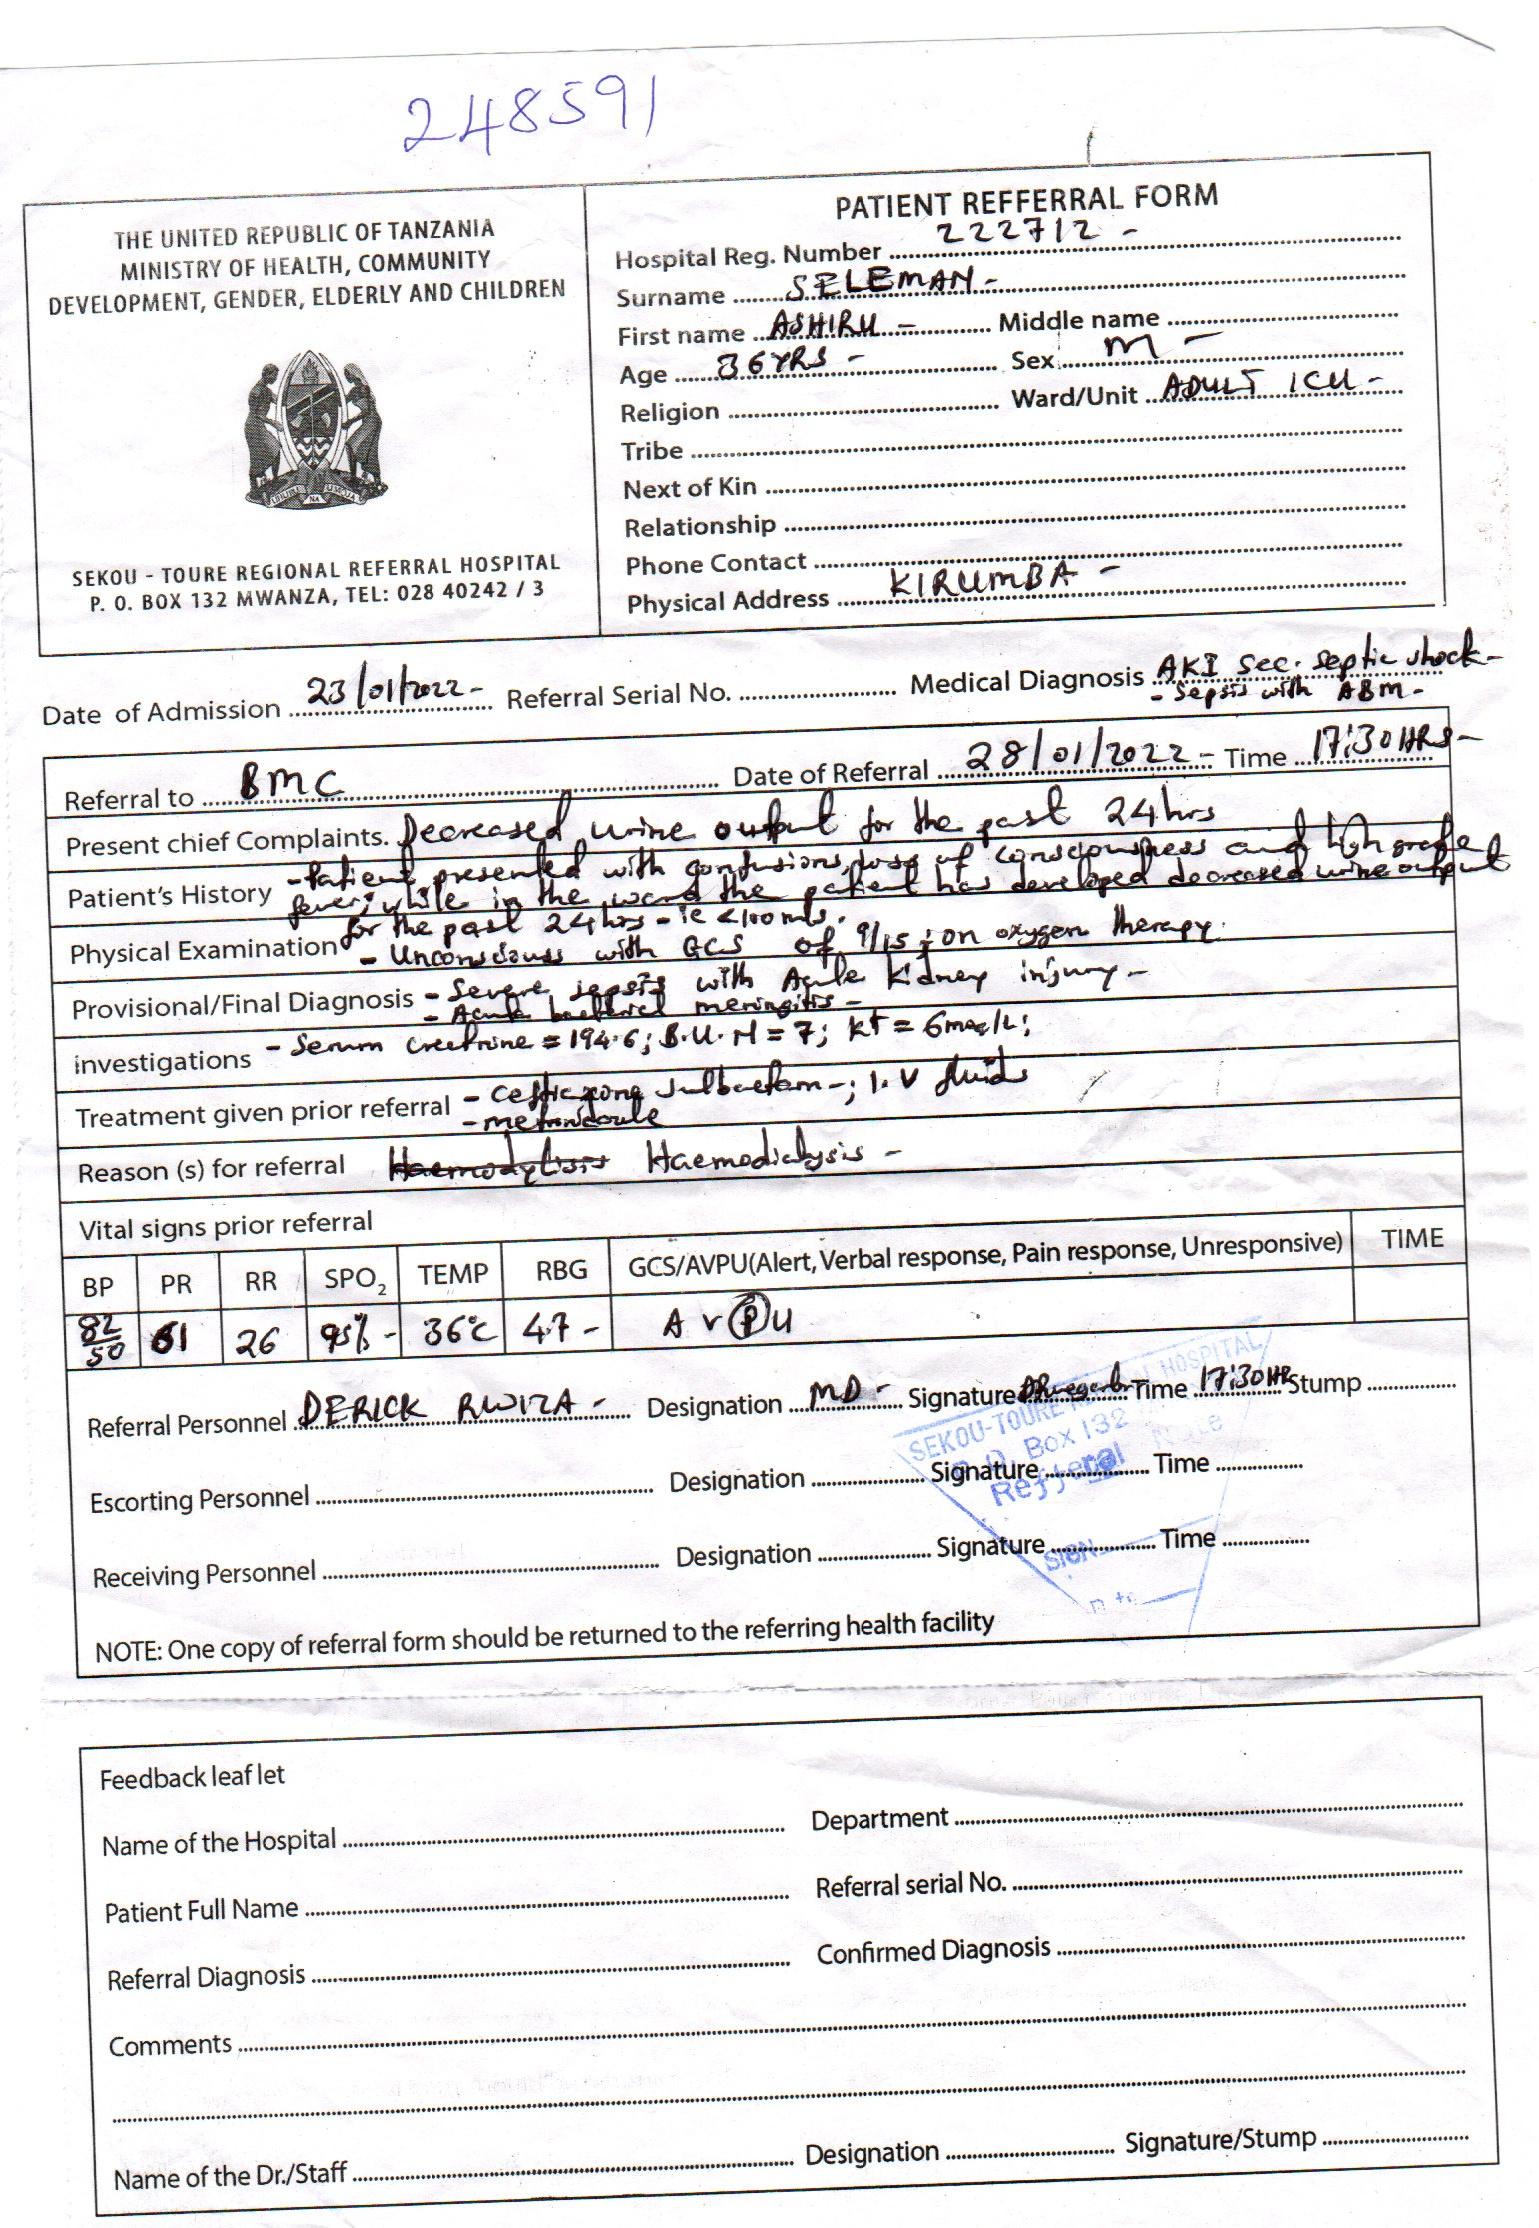 248591
THE UNITED REPUBLIC OF TANZANIA
MINISTRY OF HEALTH, COMMUNITY
DEVELOPMENT, GENDER, ELDERLY AND CHILDREN
UHURU NA UMOJA
SEKOU - TOURE REGIONAL REFERRAL HOSPITAL
P. O. BOX 132 MWANZA, TEL: 028 40242 / 3
PATIENT REFFERRAL FORM
Hospital Reg. Number 222712 -
Surname SELEMAN -
First name ASHIRU - Middle name
Age 36YRS - Sex M -
Religion Ward/Unit ADULT ICU -
Tribe
Next of Kin
Relationship
Phone Contact
Physical Address KIRUMBA -
Date of Admission 23/01/2022 - Referral Serial No. Medical Diagnosis AKI sec. septic shock -
- Sepsis with ABM -
Referral to BMC Date of Referral 28/01/2022 - Time 17:30HRS -
Present chief Complaints. Decreased urine output for the past 24hrs
Patient's History - Patient presented with confusions, loss of consciousness and high grade
fever; while in the ward the patient has developed decreased urine output
for the past 24hrs - ie <100mls.
Physical Examination - Unconscious with GCS of 9/15; on oxygen therapy.
Provisional/Final Diagnosis - Severe sepsis with Acute kidney injury -
- Acute bacterial meningitis -
investigations - Serum creatinine = 194.6; B.U.N = 7; K+ = 6meq/L;
Treatment given prior referral - Ceftriaxone Sulbactam -; I.V fluids
- metronidazole
Reason (s) for referral Haemodylisis Haemodialysis -
Vital signs prior referral
BP PR RR SPO2 TEMP RBG GCS/AVPU(Alert, Verbal response, Pain response, Unresponsive) TIME
82/50 61 26 95% - 36°C 4.7 - A V P U
Referral Personnel DERICK RWIZA - Designation MD - Signature Time 17:30HR Stump
SEKOU-TOURE HOSPITAL
P.O. Box 132
Refferal Note
SIGN
Escorting Personnel Designation Signature Time
Receiving Personnel Designation Signature Time
NOTE: One copy of referral form should be returned to the referring health facility
Feedback leaf let
Name of the Hospital Department
Patient Full Name Referral serial No.
Referral Diagnosis Confirmed Diagnosis
Comments
Name of the Dr./Staff Designation Signature/Stump